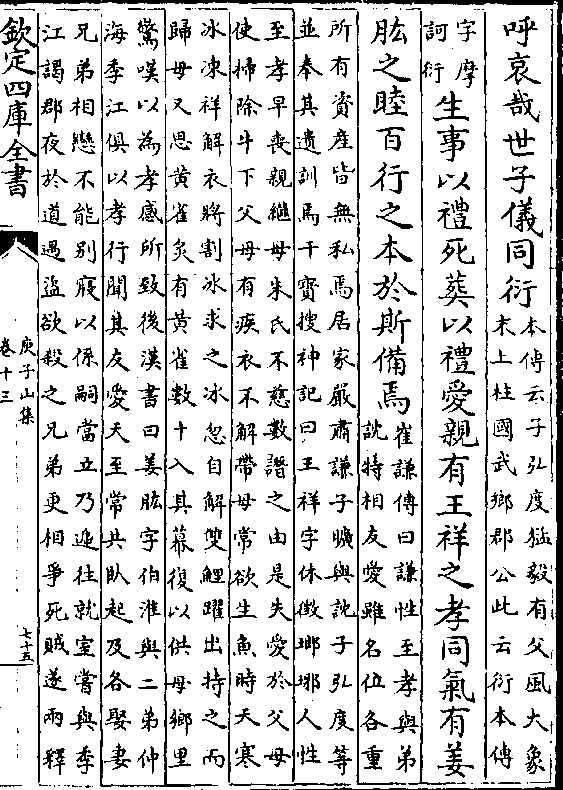 呼哀哉世子儀同衍本傳云子弘度猛毅有父風大象
末上柱國武鄉郡公此云衍本傳
字摩
訶衍生事以禮死葬以禮愛親有王祥之孝同氣有姜
肱之睦百行之本於斯備焉崔謙傳曰謙性至孝與弟
説特相友愛雖名位各重
所有資産皆無私焉居家嚴肅謙子曠與説子弘度等
並奉其遺訓焉干寶搜神記曰王祥字休徴瑯琊人性
至孝早喪親繼母朱氏不慈數譖之由是失愛於父母
使掃除牛下父母有疾衣不解帶母常欲生魚時天寒
冰凍祥解衣將割冰求之冰忽自解雙鯉躍出持之而
歸母又思黄雀炙有黄雀數十入其幕復以供母鄉里
驚嘆以為孝感所致後漢書曰姜肱字伯淮與二弟仲
海季江俱以孝行聞其友愛天至常共卧起及各娶妻
兄弟相戀不能别寢以係嗣當立乃遞往就室嘗與季
江謁郡夜於道遇盗欲殺之兄弟更相爭死賊遂兩釋
欽定四庫全書
庾子山集
卷十三
七十五